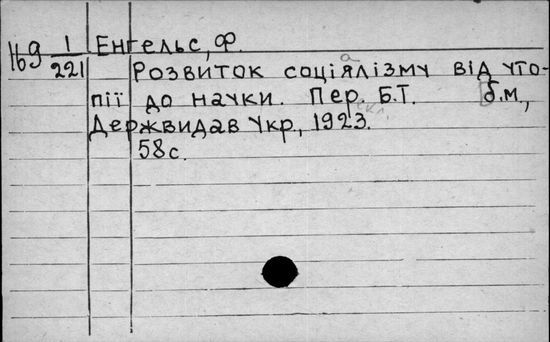 І69 1/221
Енгельс, Ф.
Розвиток соціялізму від уто-
пії до науки. Пер. Б.Т. б.м.,
Держвидав Укр., 1923.
58с.